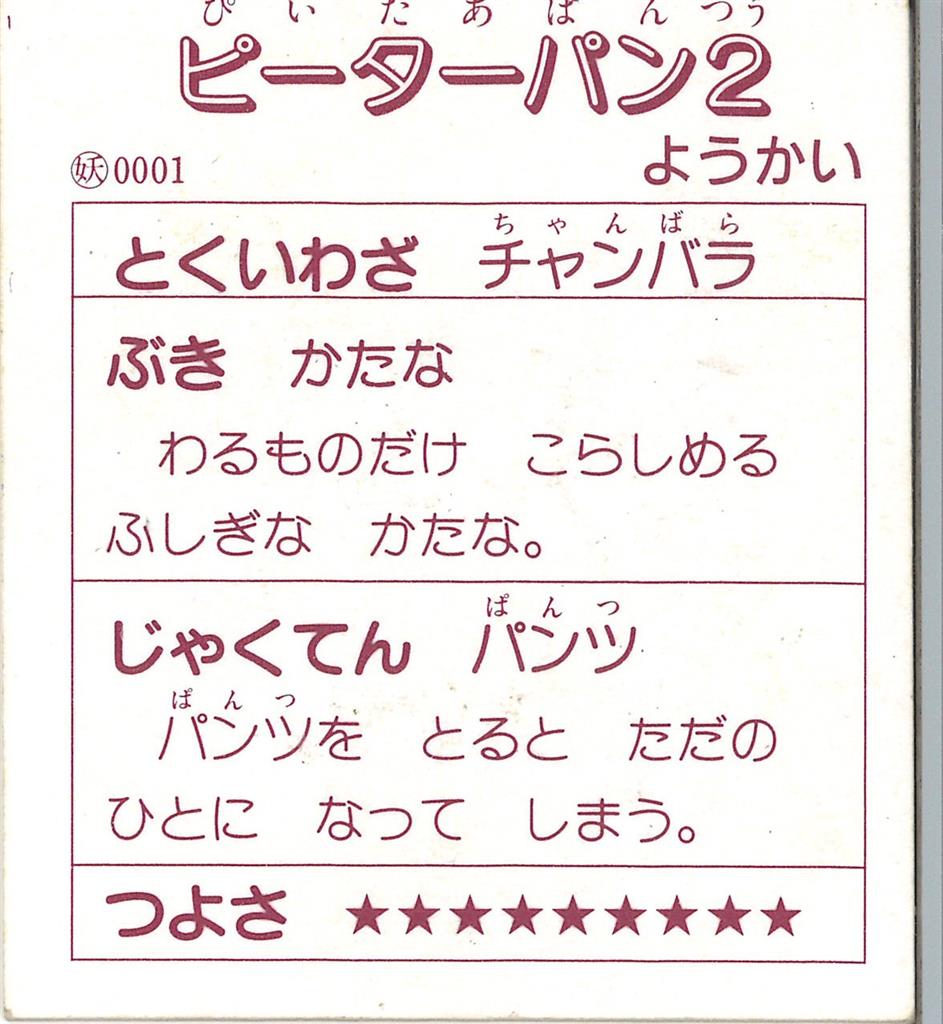 ぴいたあぱんつう
ピーターパン2
㊛0001 ようかい
ちゃんばら
とくいわざ チャンバラ
ぶき かたな
わるものだけ こらしめる
ふしぎな かたな。
ぱんつ
じゃくてん パンツ
ぱんつ
パンツを とると ただの
ひとに なって しまう。
つよさ ★★★★★★★★★